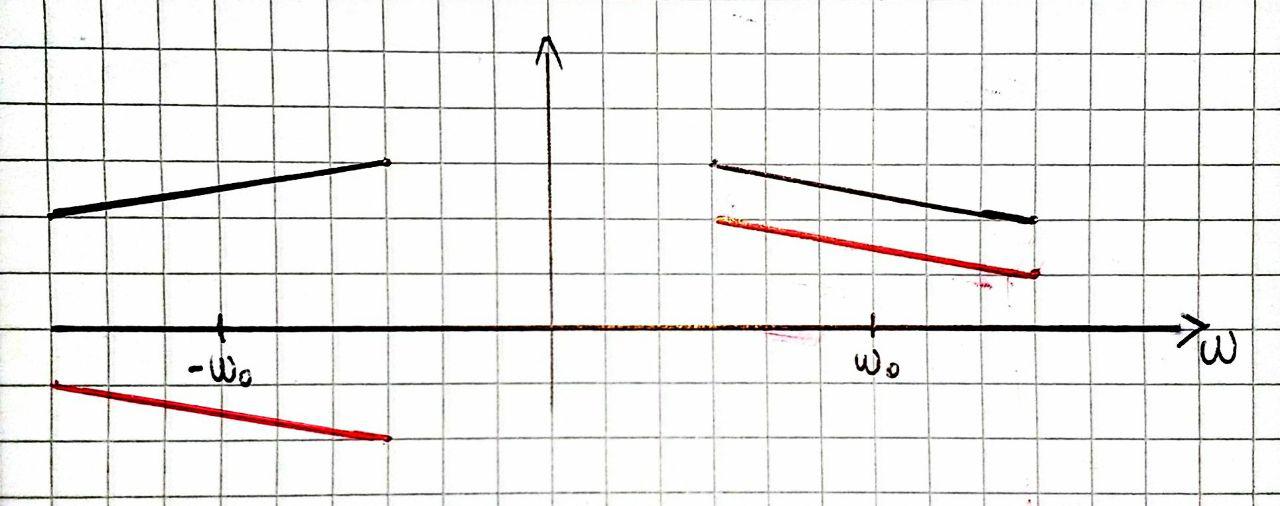 -ω₀
ω₀
ω